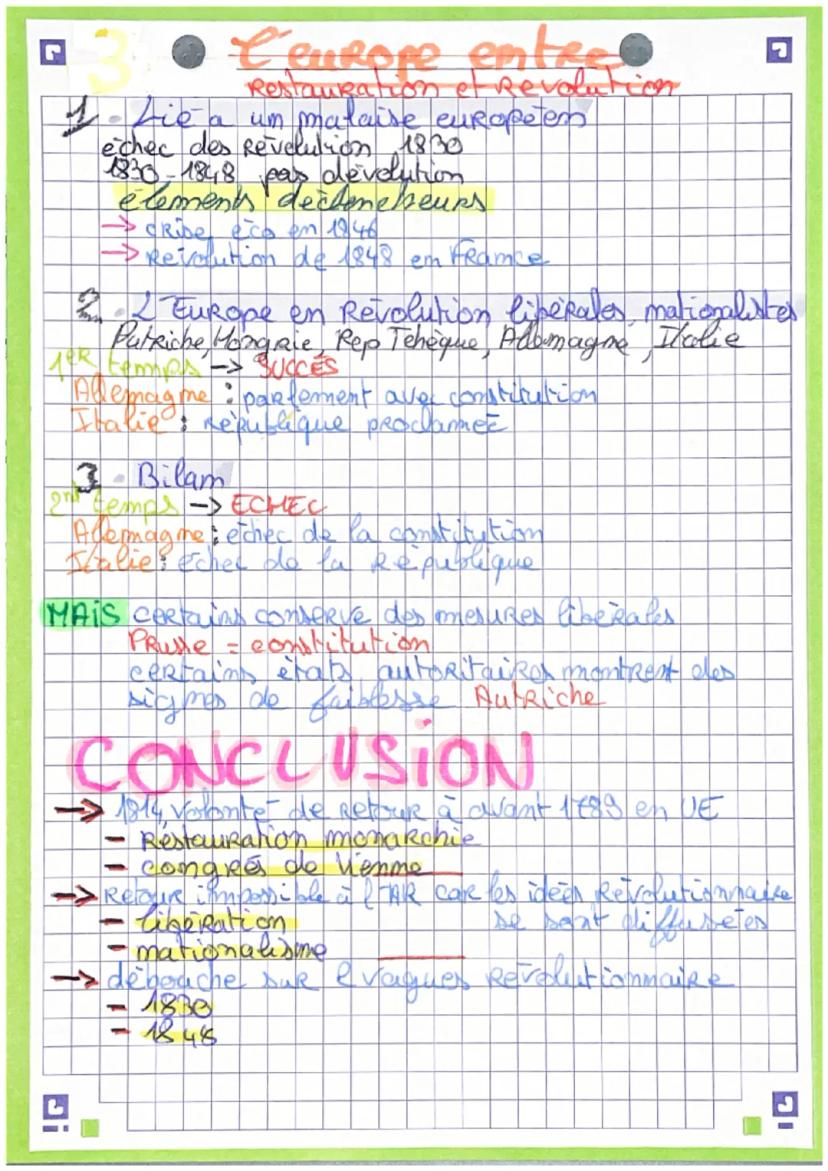 3
L'europe entre
Restauration et Révolution
1. Lié a un malaise européen
échec des Révolution 1830
1830-1848 pas dévolution
élements déclencheurs
→ crise éco en 1946
→ Révolution de 1848 en France
2. L'Europe en Révolution libérales, nationalistes
Autriche, Hongrie, Rep Tchèque, Allemagne, Italie
1ER temps → SUCCÈS
Allemagne : parlement avec constitution
Italie : République proclamée
3. Bilan
2nt temps → ECHEC
Allemagne : échec de la constitution
Italie : échec de la République
MAiS certains conserve des mesures libérales
Prusse = constitution
certains états autoritaires montrent des
signes de faiblesse Autriche
CONCLUSiON
→ 1814, volonté de retour à avant 1789 en UE
- Restauration monarchie
- congrés de Vienne
→ Retour impossible à l'AR car les idées Révolutionnaire
- libération se sont diffusées
- nationalisme
→ débouche sur 2 vagues Révolutionnaire
- 1830
- 1848